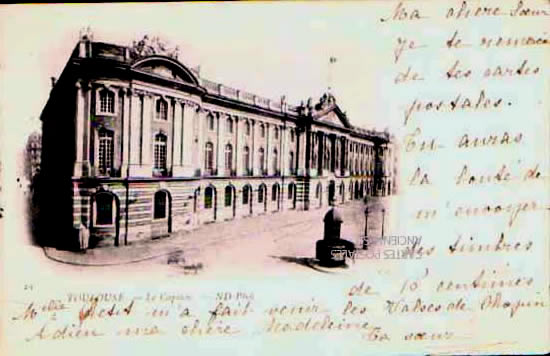 Ma chère Sœur
Je te remercie
de tes cartes
postales.
Tu auras
la bonté de
m'envoyer
des timbres
de 10 centimes
Mlle Petit m'a fait venir les Valses de Chopin
Adieu ma chère Madeleine Ta sœur
TOULOUSE. — Le Capitole — ND Phot
CARTES POSTALES
ANCIENNES